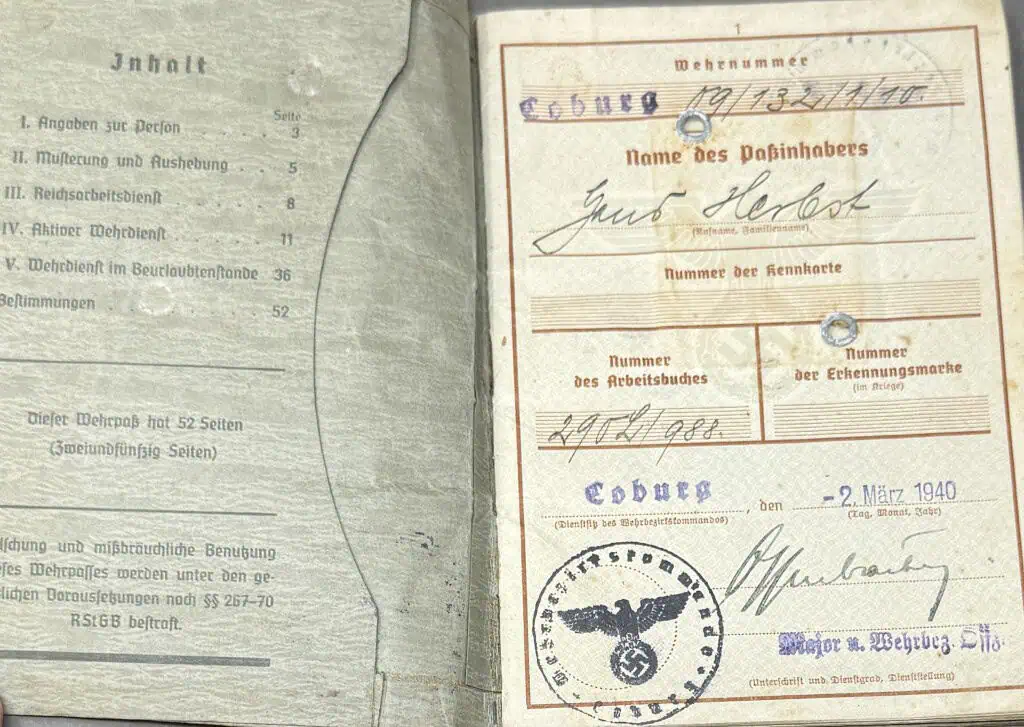 Inhalt
Seite
I. Angaben zur Person . . . . . 3
II. Musterung und Aushebung . . . 5
III. Reichsarbeitsdienst . . . . . 8
IV. Aktiver Wehrdienst . . . . . 11
V. Wehrdienst im Beurlaubtenstande 36
Bestimmungen . . . . . 52
Dieser Wehrpaß hat 52 Seiten
(Zweiundfünfzig Seiten)
lschung und mißbräuchliche Benutzung
eses Wehrpasses werden unter den ge-
lichen Voraussetzungen nach §§ 267–70
RStGB bestraft.
1
Wehrnummer
Coburg 09/132/1/10.
Name des Paßinhabers
Hans Herbst
(Rufname, Familienname)
Nummer der Kennkarte
Nummer
des Arbeitsbuches
290L/988.
Nummer
der Erkennungsmarke
(im Kriege)
Coburg, den -2. März 1940
(Dienstsitz des Wehrbezirkskommandos) (Tag, Monat, Jahr)
Wehrbezirkskommando Coburg
Major u. Wehrbez. Offz.
(Unterschrift und Dienstgrad, Dienststellung)